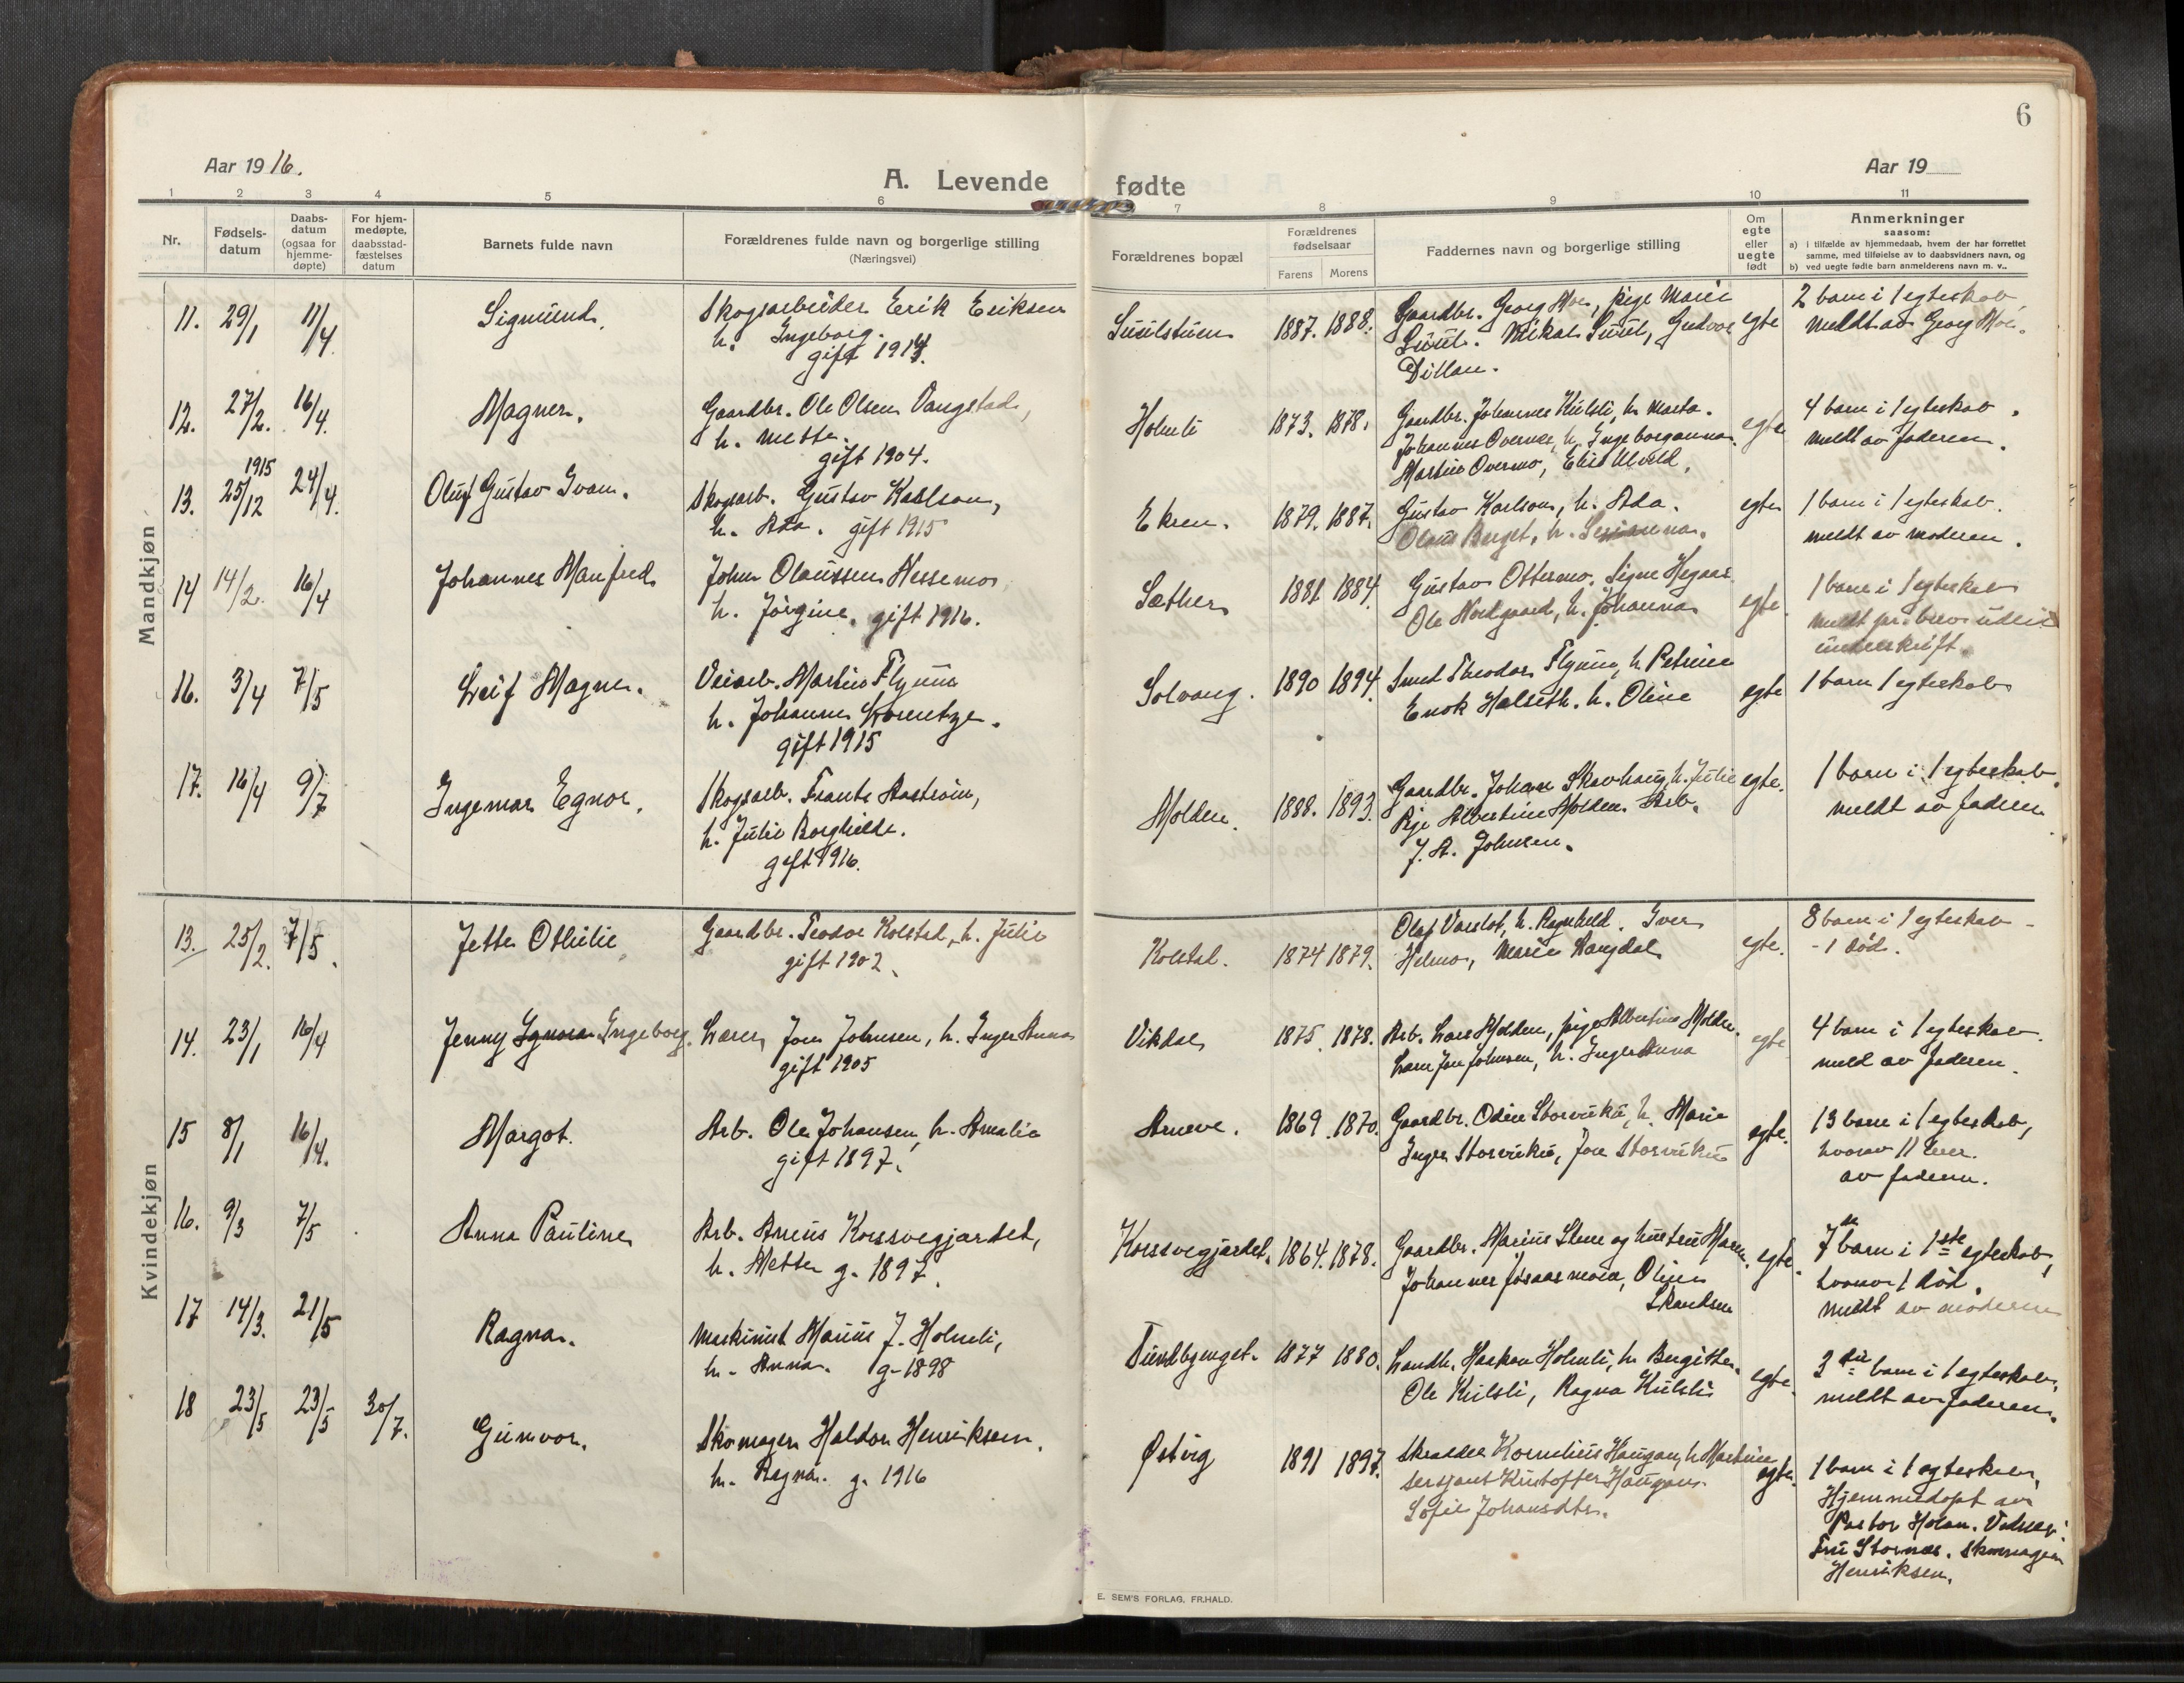 6
Aar 1916.
A. Levende fødte
Aar 19
1 2 3 4 5 6 7 8 9 10 11
Nr.
Fødsels-
datum
Daabs-
datum
(ogsaa for
hjemme-
døpte)
For hjem-
medøpte,
daabsstad-
fæstelses
datum
Barnets fulde navn
Forældrenes fulde navn og borgerlige stilling
(Næringsvei)
Forældrenes bopæl
Forældrenes
fødselsaar
Farens Morens
Faddernes navn og borgerlige stilling
Om
egte
eller
uegte
født
Anmerkninger
saasom:
a) i tilfælde av hjemmedaab, hvem der har forrettet
samme, med tilføielse av to daabsvidners navn, og
b) ved uegte fødte barn anmelderens navn m. v..
Mandkjøn
11. 29/1 11/4 Sigmund.
Skogsarbeider Erik Eriksen
h. Ingeborg.
gift 1914.
1887. 1888.
Gaardbr. Georg Moe, pige Marie
Mikal
egte
2 barn i 1 egteskab
meldt av Georg Moe.
12. 27/2. 16/4. Magner.
Gaardbr. Ole Olsen Vangstad,
h. Mette.
gift 1904.
Holmli 1873. 1878.
Gaardbr. Johannes Kulsli, h. Marta.
Johannes Overmo, h. Ingeborganna.
Martin Overmo,
egte
4 barn i 1 egteskab.
meldt av faderen.
13. 1915 25/12 24/4. Oluf Gustav Ivan.
Skogsarb. Gustav Karlson,
h. Ada. gift 1915
Ekren. 1879. 1887.
Gustav Karlson, h. Ada.
Olaus Berget, h.
egte
1 barn i 1 egteskab.
meldt av moderen.
14 14/2. 16/4 Johannes Manfred
Johan Olaussen Nessemo
h. Jörgine. gift 1916.
Sæther 1881 1884.
Gustav Ottermo. Signe
Ole Nordgaard, h. Johanna
egte.
1 barn i 1 egteskab
meldt pr. brev uden
underskrift.
16. 3/4 7/5 Leif Magne.
Veiarb. Martin Flynum
h. Johanne Lorentze.
gift 1915
Solvang. 1890 1894.
Smed Theodor Flynum, h. Petrine
Enok Halseth. h. Oline
egte
1 barn 1 egteskab
17. 16/4 9/7 Ingemar Egnor.
Skogsarb. Frants Aastrøm,
h. Julie Borghilde.
gift 1916.
Molden. 1888. 1893.
Gaardbr. Johan Skavhaug h. Julie
Pige Albertine Molden. Arb.
J. A. Johnsen.
egte.
1 barn i 1 egteskab.
meldt av faderen
Kvindekjøn
13. 25/2. 7/5. Jette Othilie
Gaardbr. Teodor Kolstad, h. Julie
gift 1902.
Kolstad. 1874 1879.
Olaf Varslot, h. Ragnhild. Iver
Helmo, Marie Langdal
egte.
8 barn i 1 egteskab -
- 1 død.
14. 23/1 16/4 Jenny Ignora Ingeborg.
Lærer Jon Johnsen, h. Inger Anna
gift 1905
Vikdal 1875. 1878.
Arb. Lars Molden, pige Albertine Molden.
Lærer Jon Johnsen, h. Inger Anna
egte
4 barn i 1 egteskab.
meld av faderen.
15 8/1 16/4. Margot.
Arb. Ole Johansen, h. Amalie
gift 1897.
1869. 1870.
Gaardbr. Odin Storvuku, h. Marie
Inger Storvuku, Jon Storvuku
egte.
13 barn i 1 egteskab,
hvorav 11 lever.
av faderen.
16. 9/3 7/5. Anna Pauline
Arb. Aneus Korssvegjardet,
h. Mette g. 1897.
Korssvegjardet. 1864. 1878.
Gaardbr. Marius Stene og hustru Maren.
Johannes
Skandsen
egte.
7de barn i 1ste egteskab,
hvorav 1 død.
meldt av moderen
17 14/3. 21/5 Ragna.
Maskinist Marius J. Holmli,
h. Anna. g. 1898
1877 1880.
Landh. Haakon Holmli, h. Bergitte.
Ole Kulsli, Ragna Kulsli
egte.
3die barn i 1 egteskab,
meldt av faderen.
18 23/5 23/5 30/7. Gunvor.
Skomager Haldor Henriksen.
h. Ragna. g. 1916
Østvig 1891 1897.
Skrædder Kornelius Haugan, h. Martine
Sersjant Kristoffer Haugan.
Sofie Johansdtr.
egte.
1 barn i 1 egteskab.
Hjemmedøpt av
Pastor Holan. Vidner:
Fru Stornæs. Skomager
Henriksen.
E. SEM'S FORLAG, FR.HALD.